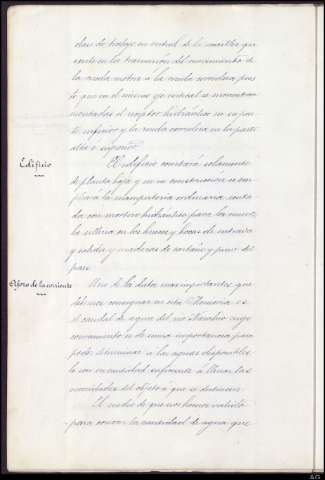 clase de trabajo en virtud de la sencillez que
existe en la trasmisión del movimiento de
la rueda motora á la rueda corredera pues
to que en el mismo eje vertical se encuentran
montados el receptor hidráulico en su par
te inferior y la rueda corredera en la parte
alta ó superior.
Edificio
El edificio constará solamente
de planta baja y en su construcción se em
pleará la mampostería ordinaria, senta
da con mortero hidráulico para los muros,
la sillería en los huecos y bocas de entrada
y salida y maderas de castaño y pino del
país.
Aforo de la corriente
Uno de los datos mas importantes que
debemos consignar en esta Memoria es
el caudal de agua del río cuyo
conocimiento es de suma importancia para
poder determinar si las aguas disponibles
lo son en cantidad suficiente á llenar las
necesidades del objeto á que se destinan.
El medio de que nos hemos valido
para conocer la cantidad de agua que